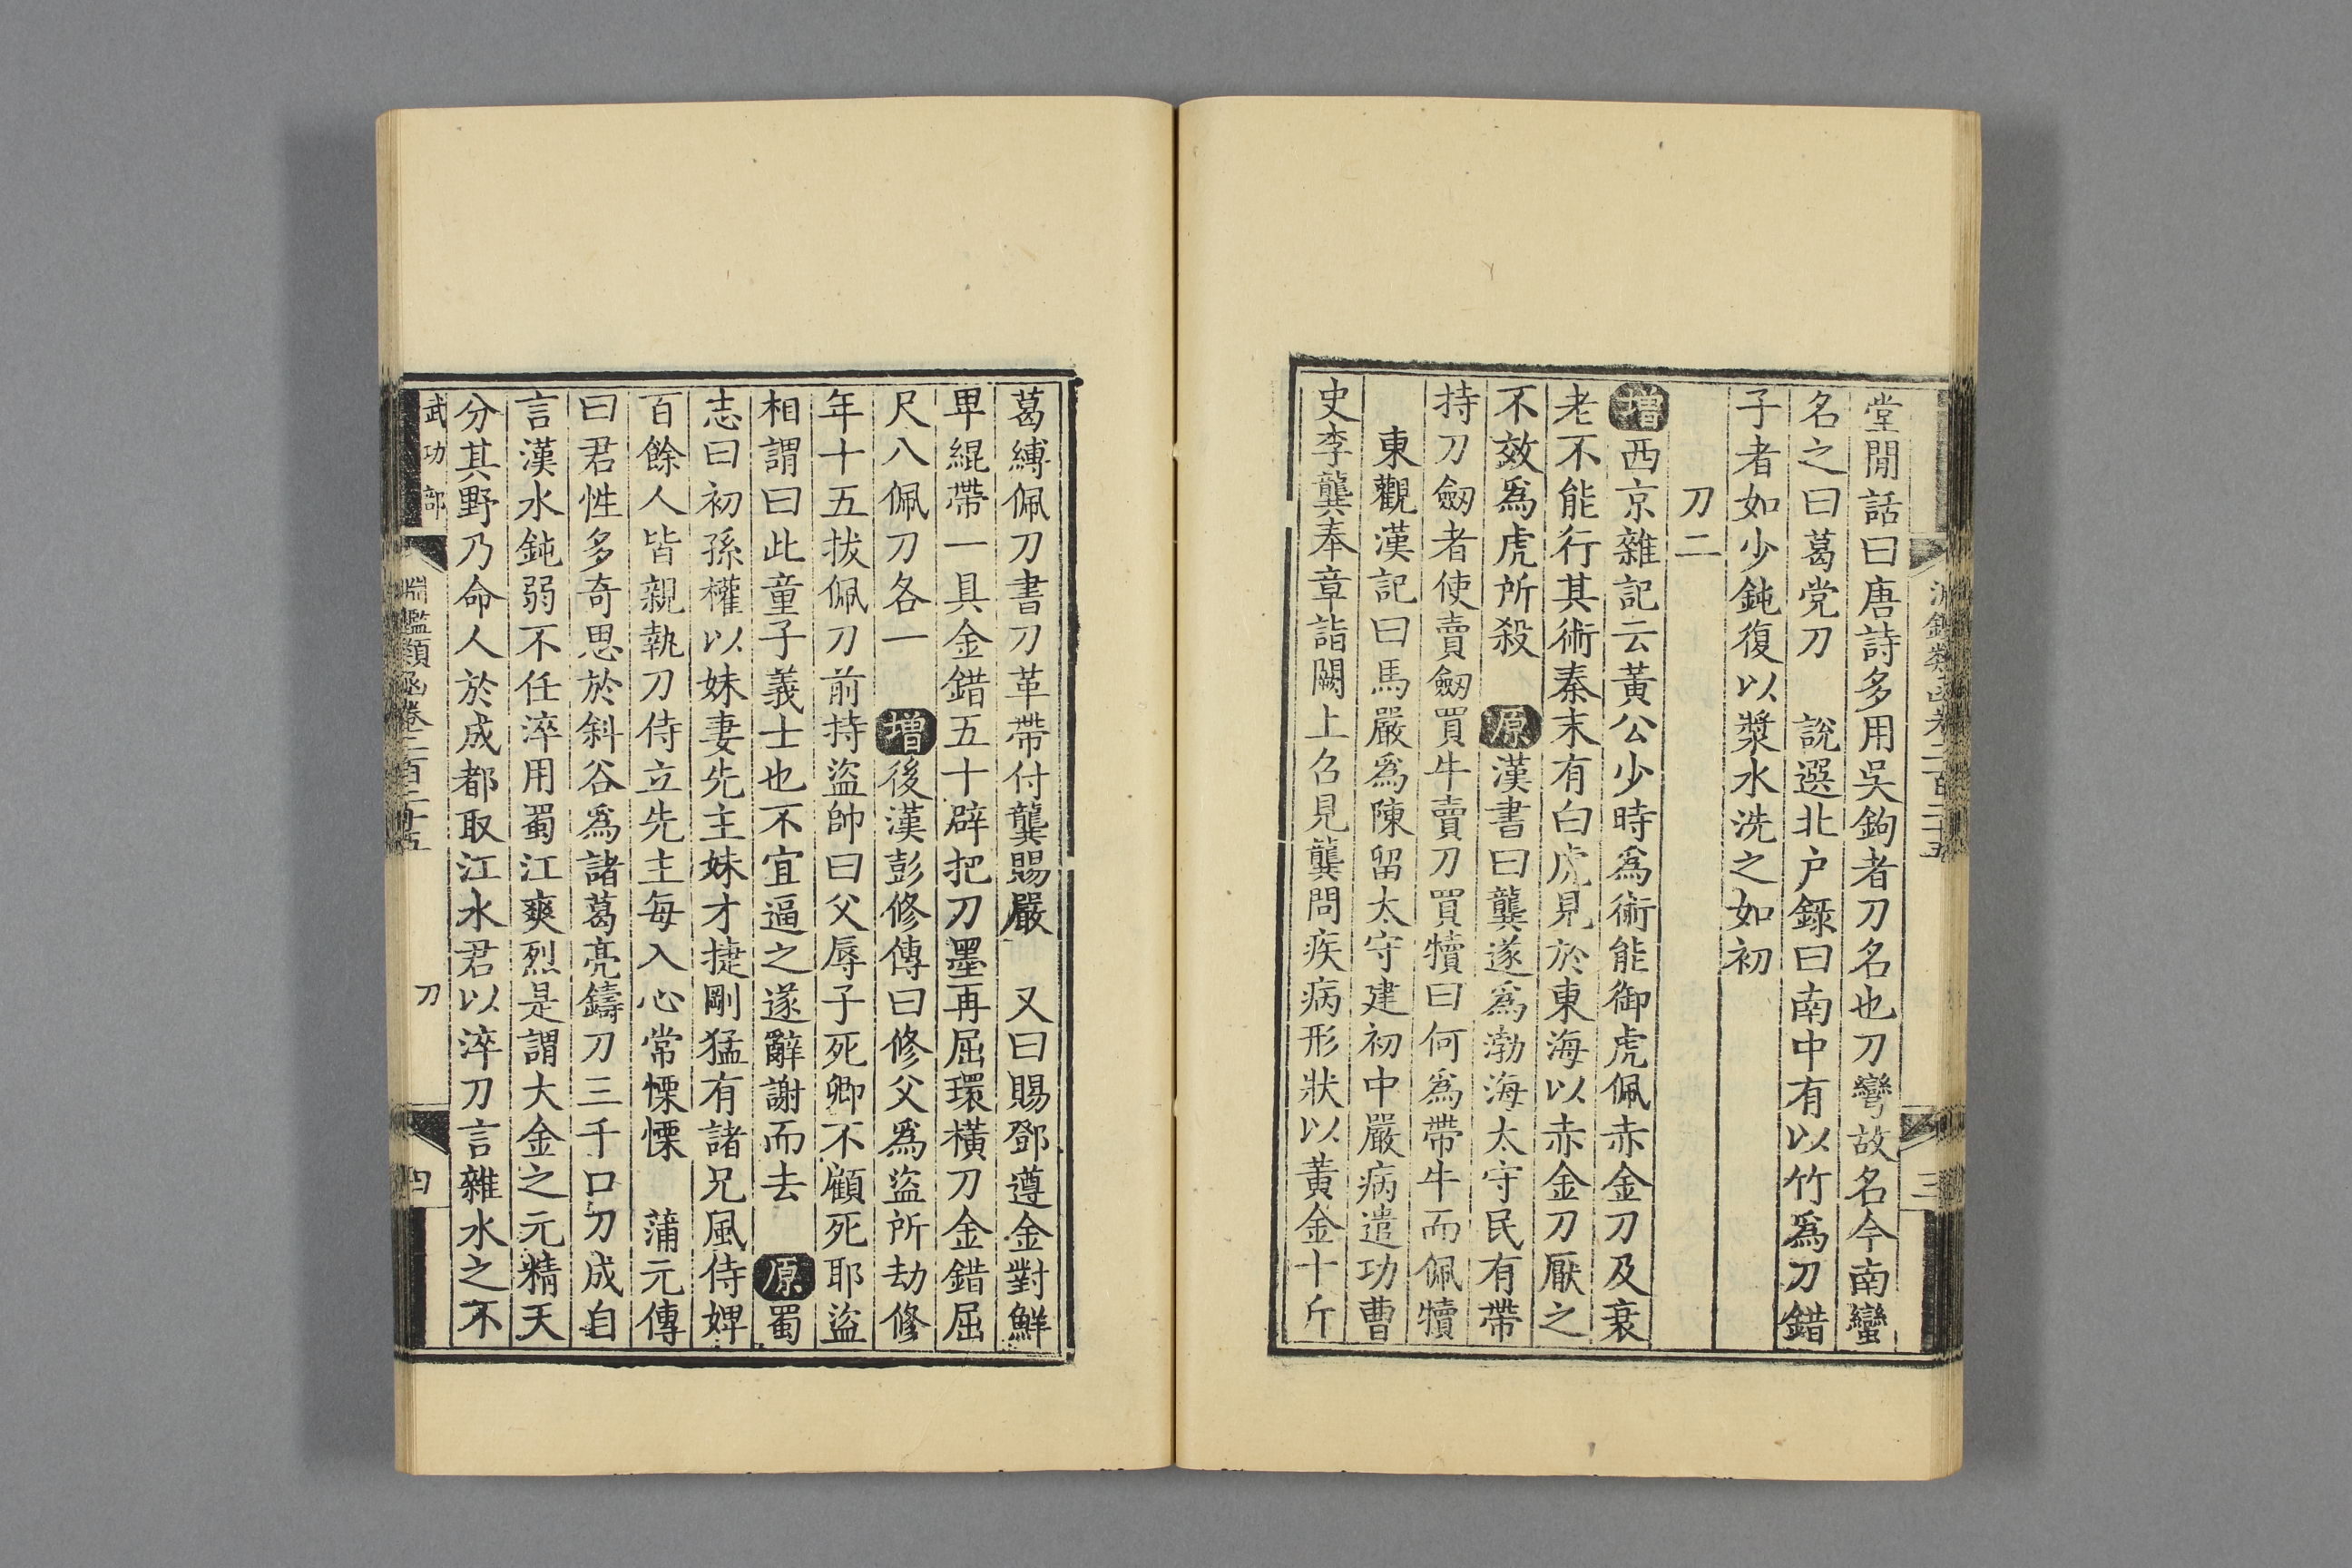 堂閒話曰唐詩多用吳鉤者刀名也刀彎故名今南蠻
名之曰葛党刀　說選北户錄曰南中有以竹爲刀錯
子者如少鈍復以漿水洗之如初
刀二
增西京雜記云黃公少時爲術能御虎佩赤金刀及衰
老不能行其術秦末有白虎見於東海以赤金刀厭之
不效爲虎所殺　原漢書曰龔遂爲渤海太守民有帶
持刀劒者使賣劒買牛賣刀買犢曰何爲帶牛而佩犢
東觀漢記曰馬嚴爲陳留太守建初中嚴病遣功曹
史李龔奉章詣闕上召見龔問疾病形狀以黃金十斤
葛縛佩刀書刀革帶付龔賜嚴　又曰賜鄧遵金對鮮
卑緄帶一具金錯五十辟把刀墨再屈環橫刀金錯屈
尺八佩刀各一　增後漢彭修傳曰修父爲盜所劫修
年十五拔佩刀前持盜帥曰父辱子死卿不顧死耶盜
相謂曰此童子義士也不宜逼之遂辭謝而去　原蜀
志曰初孫權以妹妻先主妹才捷剛猛有諸兄風侍婢
百餘人皆親執刀侍立先主每入心常慄慄　蒲元傳
曰君性多奇思於斜谷爲諸葛亮鑄刀三千口刀成自
言漢水鈍弱不任淬用蜀江爽烈是謂大金之元精天
分其野乃命人於成都取江水君以淬刀言雜水之不
武功部　淵鑑類函卷二百二十五　刀　四